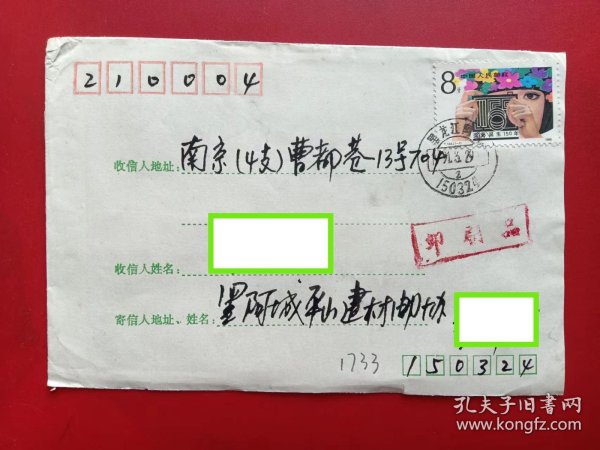 210004
8分
中国人民邮政
150
摄影诞生150年
黑龙江
150324
收信人地址:南京(4支)曹都巷13号
印刷品
收信人姓名:
寄信人地址、姓名:黑阿城平山建材
1733
150324
孔夫子旧书网
www.kongfz.com